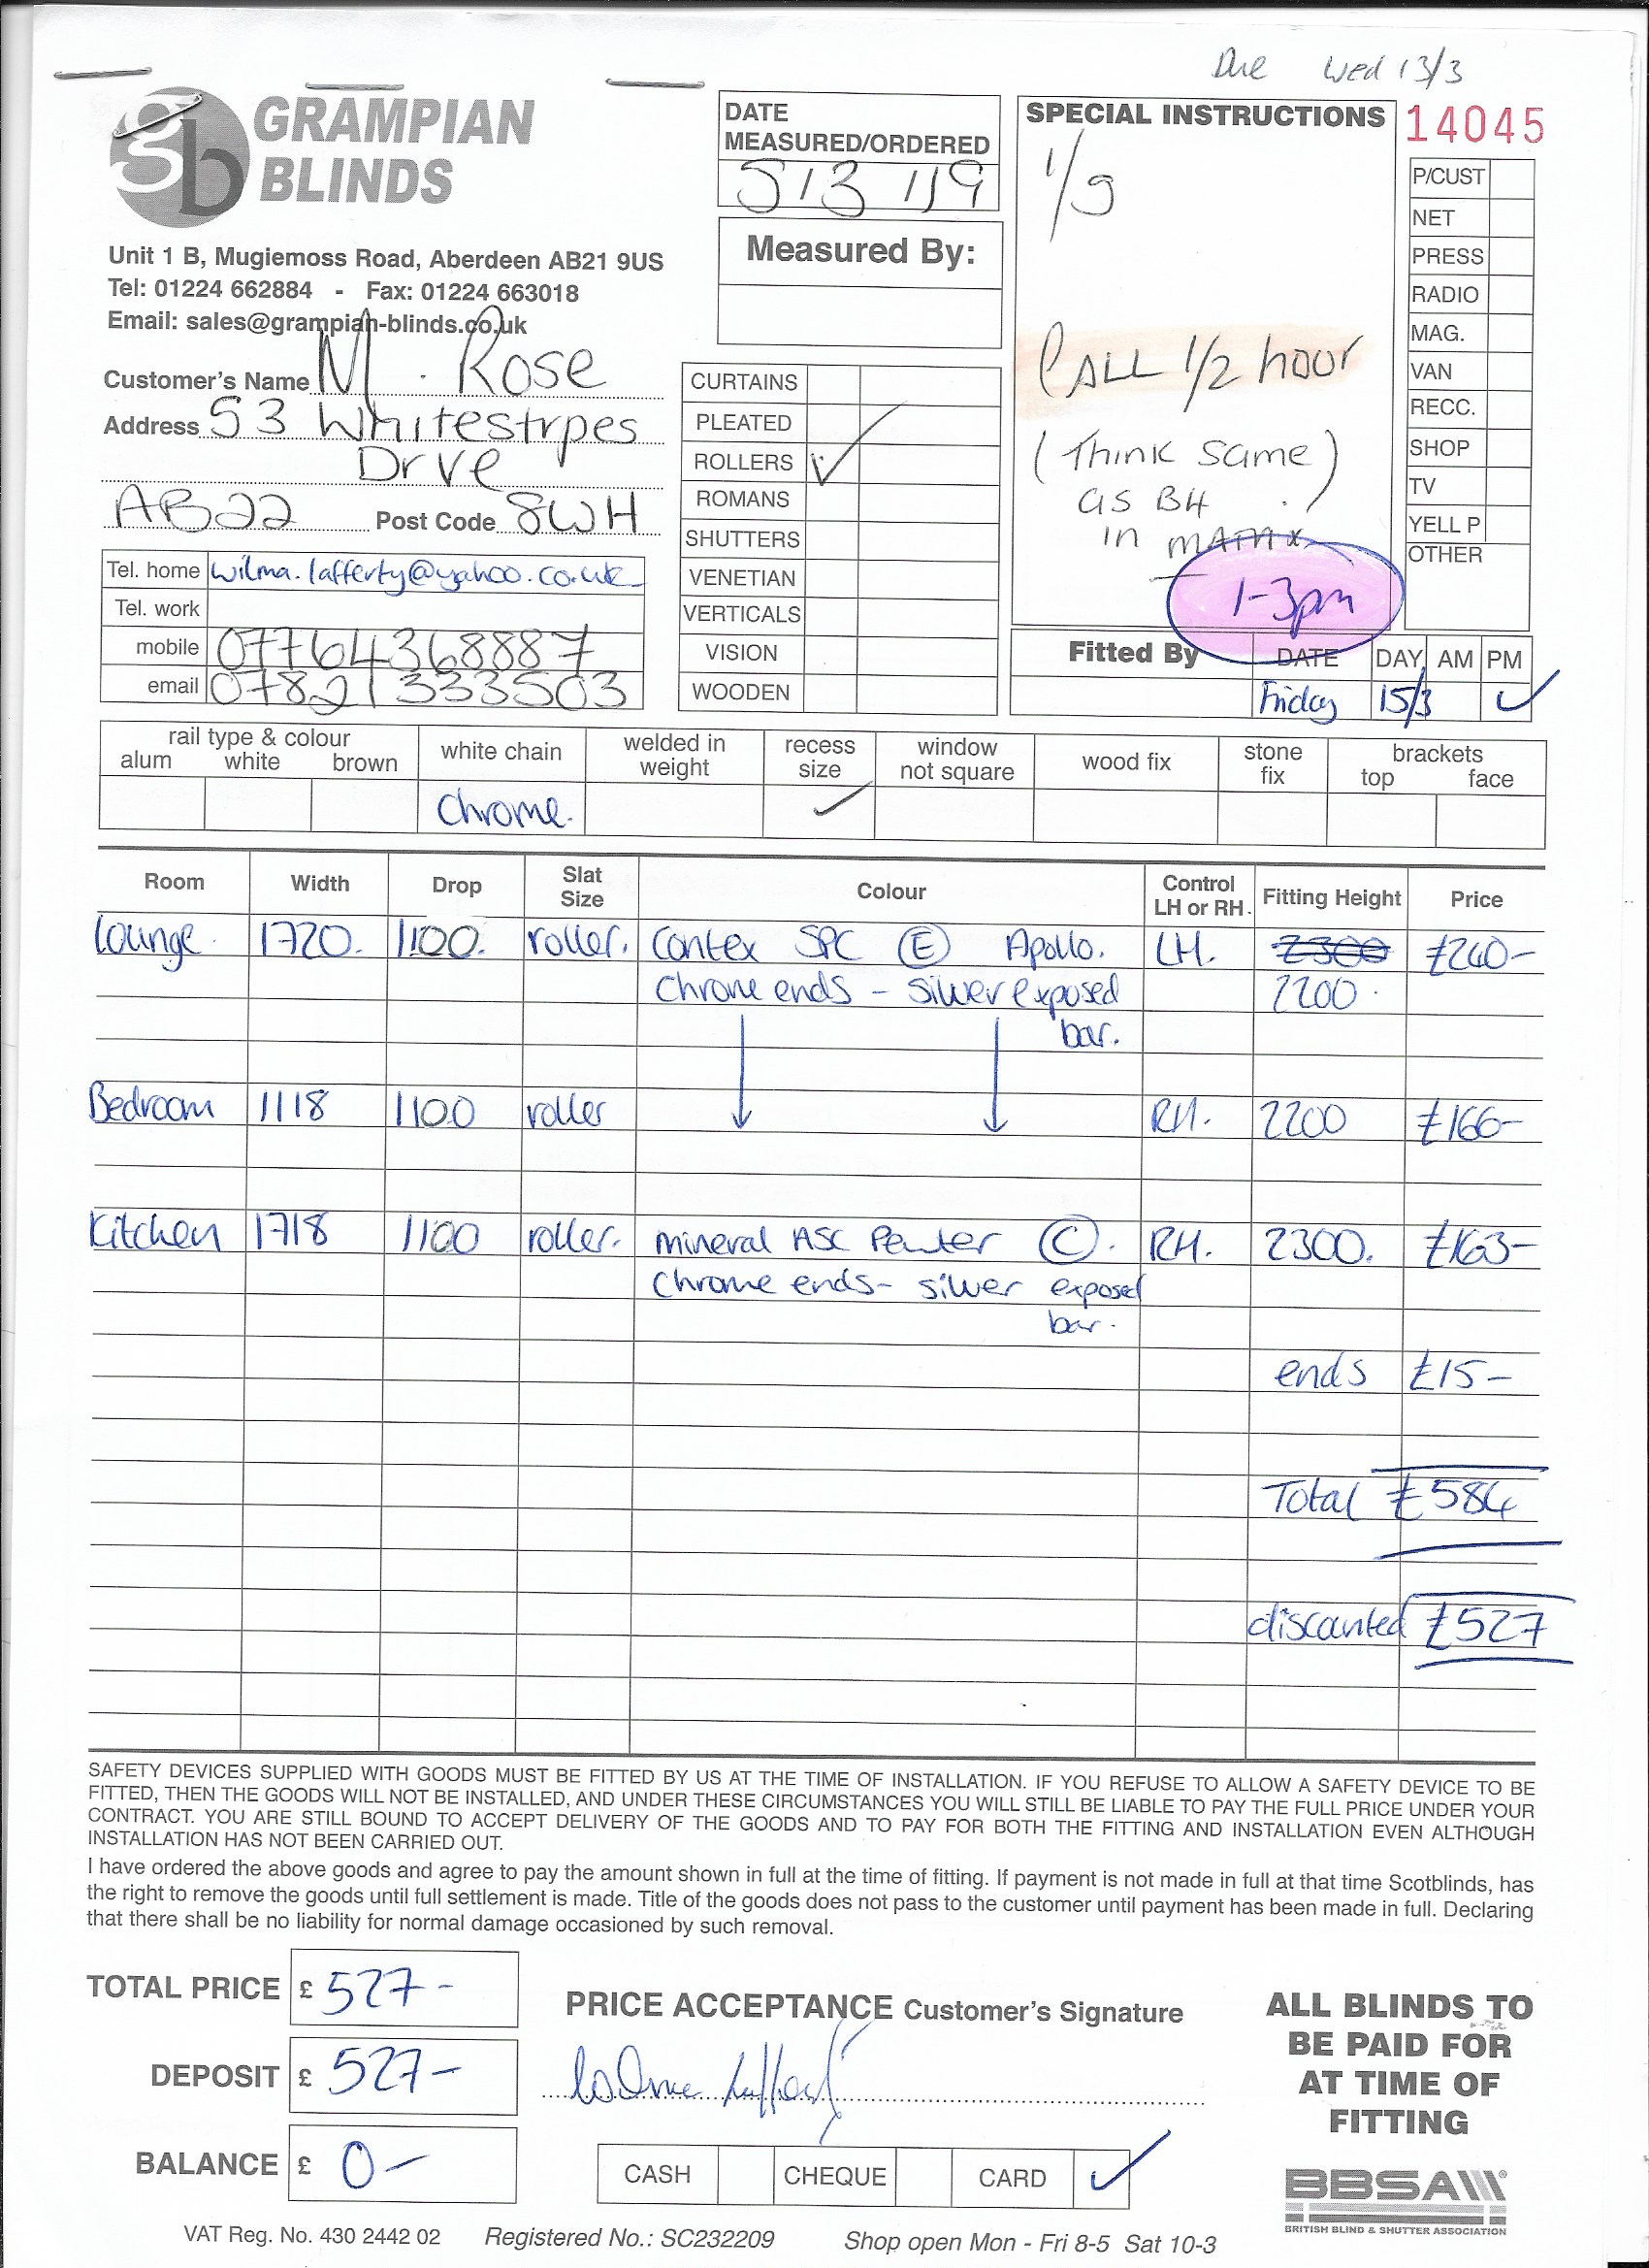 Due Wed 13/3
gb GRAMPIAN
BLINDS
Unit 1 B, Mugiemoss Road, Aberdeen AB21 9US
Tel: 01224 662884 - Fax: 01224 663018
Email: sales@grampian-blinds.co.uk
Customer's Name M. Rose
Address 53 Whitestrpes
Drve
AB22 Post Code 8WH
Tel. home wilma.lafferty@yahoo.co.uk
Tel. work
mobile 07764368887
email 07821333503
DATE
MEASURED/ORDERED
5/3/19
Measured By:
CURTAINS
PLEATED
ROLLERS ✓
ROMANS
SHUTTERS
VENETIAN
VERTICALS
VISION
WOODEN
SPECIAL INSTRUCTIONS
CALL 1/2 hour
(Think same)
as B4
in
1-3pm
14045
P/CUST
NET
PRESS
RADIO
MAG.
VAN
RECC.
SHOP
TV
YELL P
OTHER
Fitted By DATE DAY AM PM
Friday 15/3 ✓
rail type & colour white chain welded in weight recess size window not square wood fix stone fix brackets
alum white brown top face
Chrome. ✓
Room Width Drop Slat Size Colour Control LH or RH. Fitting Height Price
Lounge. 1720. 1100. roller. Contex SPC (E) Apollo. LH. 2300 £240-
Chrome ends - silver exposed 2200.
bar.
Bedroom 1118 1100 roller RH. 2200 £166-
Kitchen 1718 1100 roller. mineral ASC Pewter (C). RH. 2300. £163-
Chrome ends- silver exposed
bar.
ends £15-
Total £584
discounted £527
SAFETY DEVICES SUPPLIED WITH GOODS MUST BE FITTED BY US AT THE TIME OF INSTALLATION. IF YOU REFUSE TO ALLOW A SAFETY DEVICE TO BE
FITTED, THEN THE GOODS WILL NOT BE INSTALLED, AND UNDER THESE CIRCUMSTANCES YOU WILL STILL BE LIABLE TO PAY THE FULL PRICE UNDER YOUR
CONTRACT. YOU ARE STILL BOUND TO ACCEPT DELIVERY OF THE GOODS AND TO PAY FOR BOTH THE FITTING AND INSTALLATION EVEN ALTHOUGH
INSTALLATION HAS NOT BEEN CARRIED OUT.
I have ordered the above goods and agree to pay the amount shown in full at the time of fitting. If payment is not made in full at that time Scotblinds, has
the right to remove the goods until full settlement is made. Title of the goods does not pass to the customer until payment has been made in full. Declaring
that there shall be no liability for normal damage occasioned by such removal.
TOTAL PRICE £ 527-
DEPOSIT £ 527-
BALANCE £ 0-
PRICE ACCEPTANCE Customer's Signature
CASH CHEQUE CARD ✓
ALL BLINDS TO
BE PAID FOR
AT TIME OF
FITTING
BBSA
BRITISH BLIND & SHUTTER ASSOCIATION
VAT Reg. No. 430 2442 02 Registered No.: SC232209 Shop open Mon - Fri 8-5 Sat 10-3